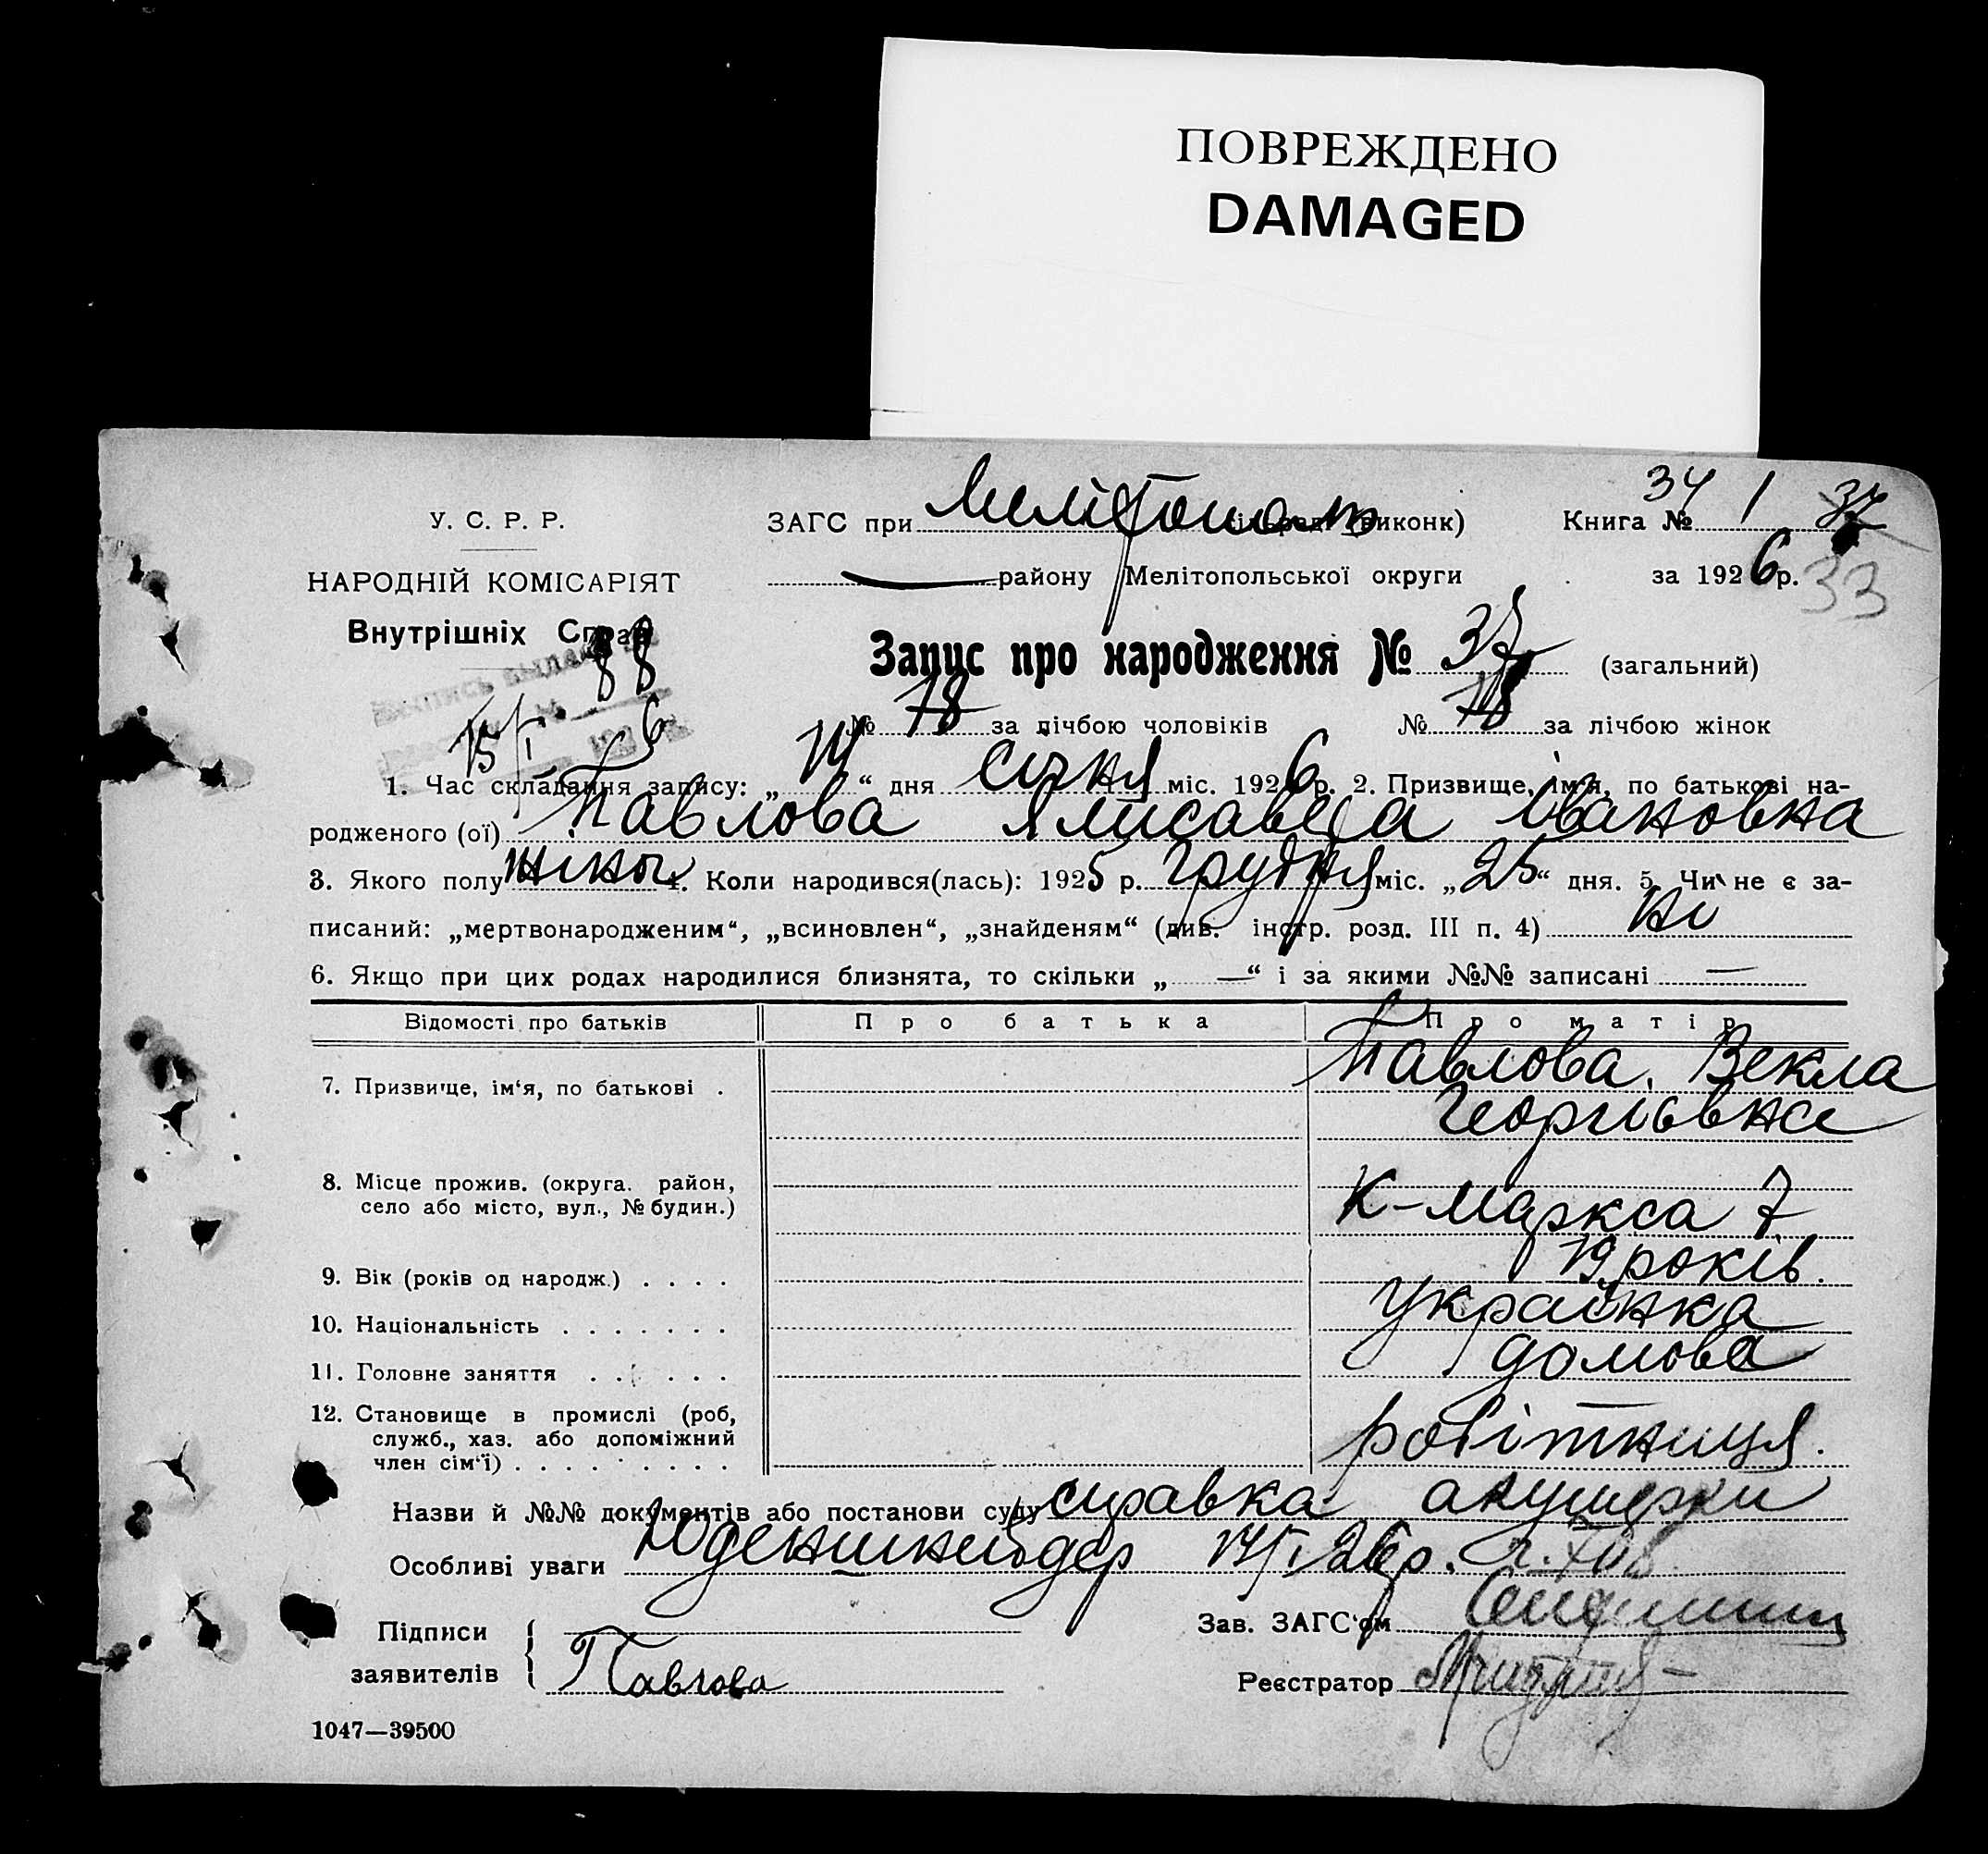 ПОВРЕЖДЕНО
DAMAGED
34 1 37
У. С. Р. Р.
ЗАГС при Мелітопол (виконк) Книга №
НАРОДНІЙ КОМІСАРІЯТ
району Мелітопольської округи за 1926 р. 33
Внутрішніх Справ
88
Запис про народження № 37 (загальний)
№ 18 за лічбою чоловіків № 18 за лічбою жінок
15/I 6
1. Час складання запису: „14“ дня січня міс. 1926 р. 2. Призвище, ім'я, по батькові на-
родженого (ої) Павлова Ялисавета Івановна
3. Якого полу жіноч 4. Коли народився(лась): 1925 р. Грудня міс. „25“ дня. 5. Чи не є за-
писаний: „мертвонародженим“, „всиновлен“, „знайденям“ (див. інстр. розд. III п. 4) ні
6. Якщо при цих родах народилися близнята, то скільки „—“ і за якими №№ записані —
Відомості про батьків Про батька Про матір
7. Призвище, ім'я, по батькові . Павлова Векла
Георгіевна
8. Місце прожив. (округа. район,
село або місто, вул., № будин.) К-Маркса 7
9. Вік (років од народж.) . . . . 19 років.
10. Національність . . . . . . . Украінка
11. Головне заняття . . . . . . домова
12. Становище в промислі (роб,
служб., хаз. або допоміжний
член сім'ї) . . . . . . . . . робітниця.
Назви й №№ документів або постанови суду справка акушерки
Особливі уваги Юденшнейдер 14/I 26 р.
Підписи
заявителів Павлова
Зав. ЗАГС'ом
Реєстратор
1047—39500